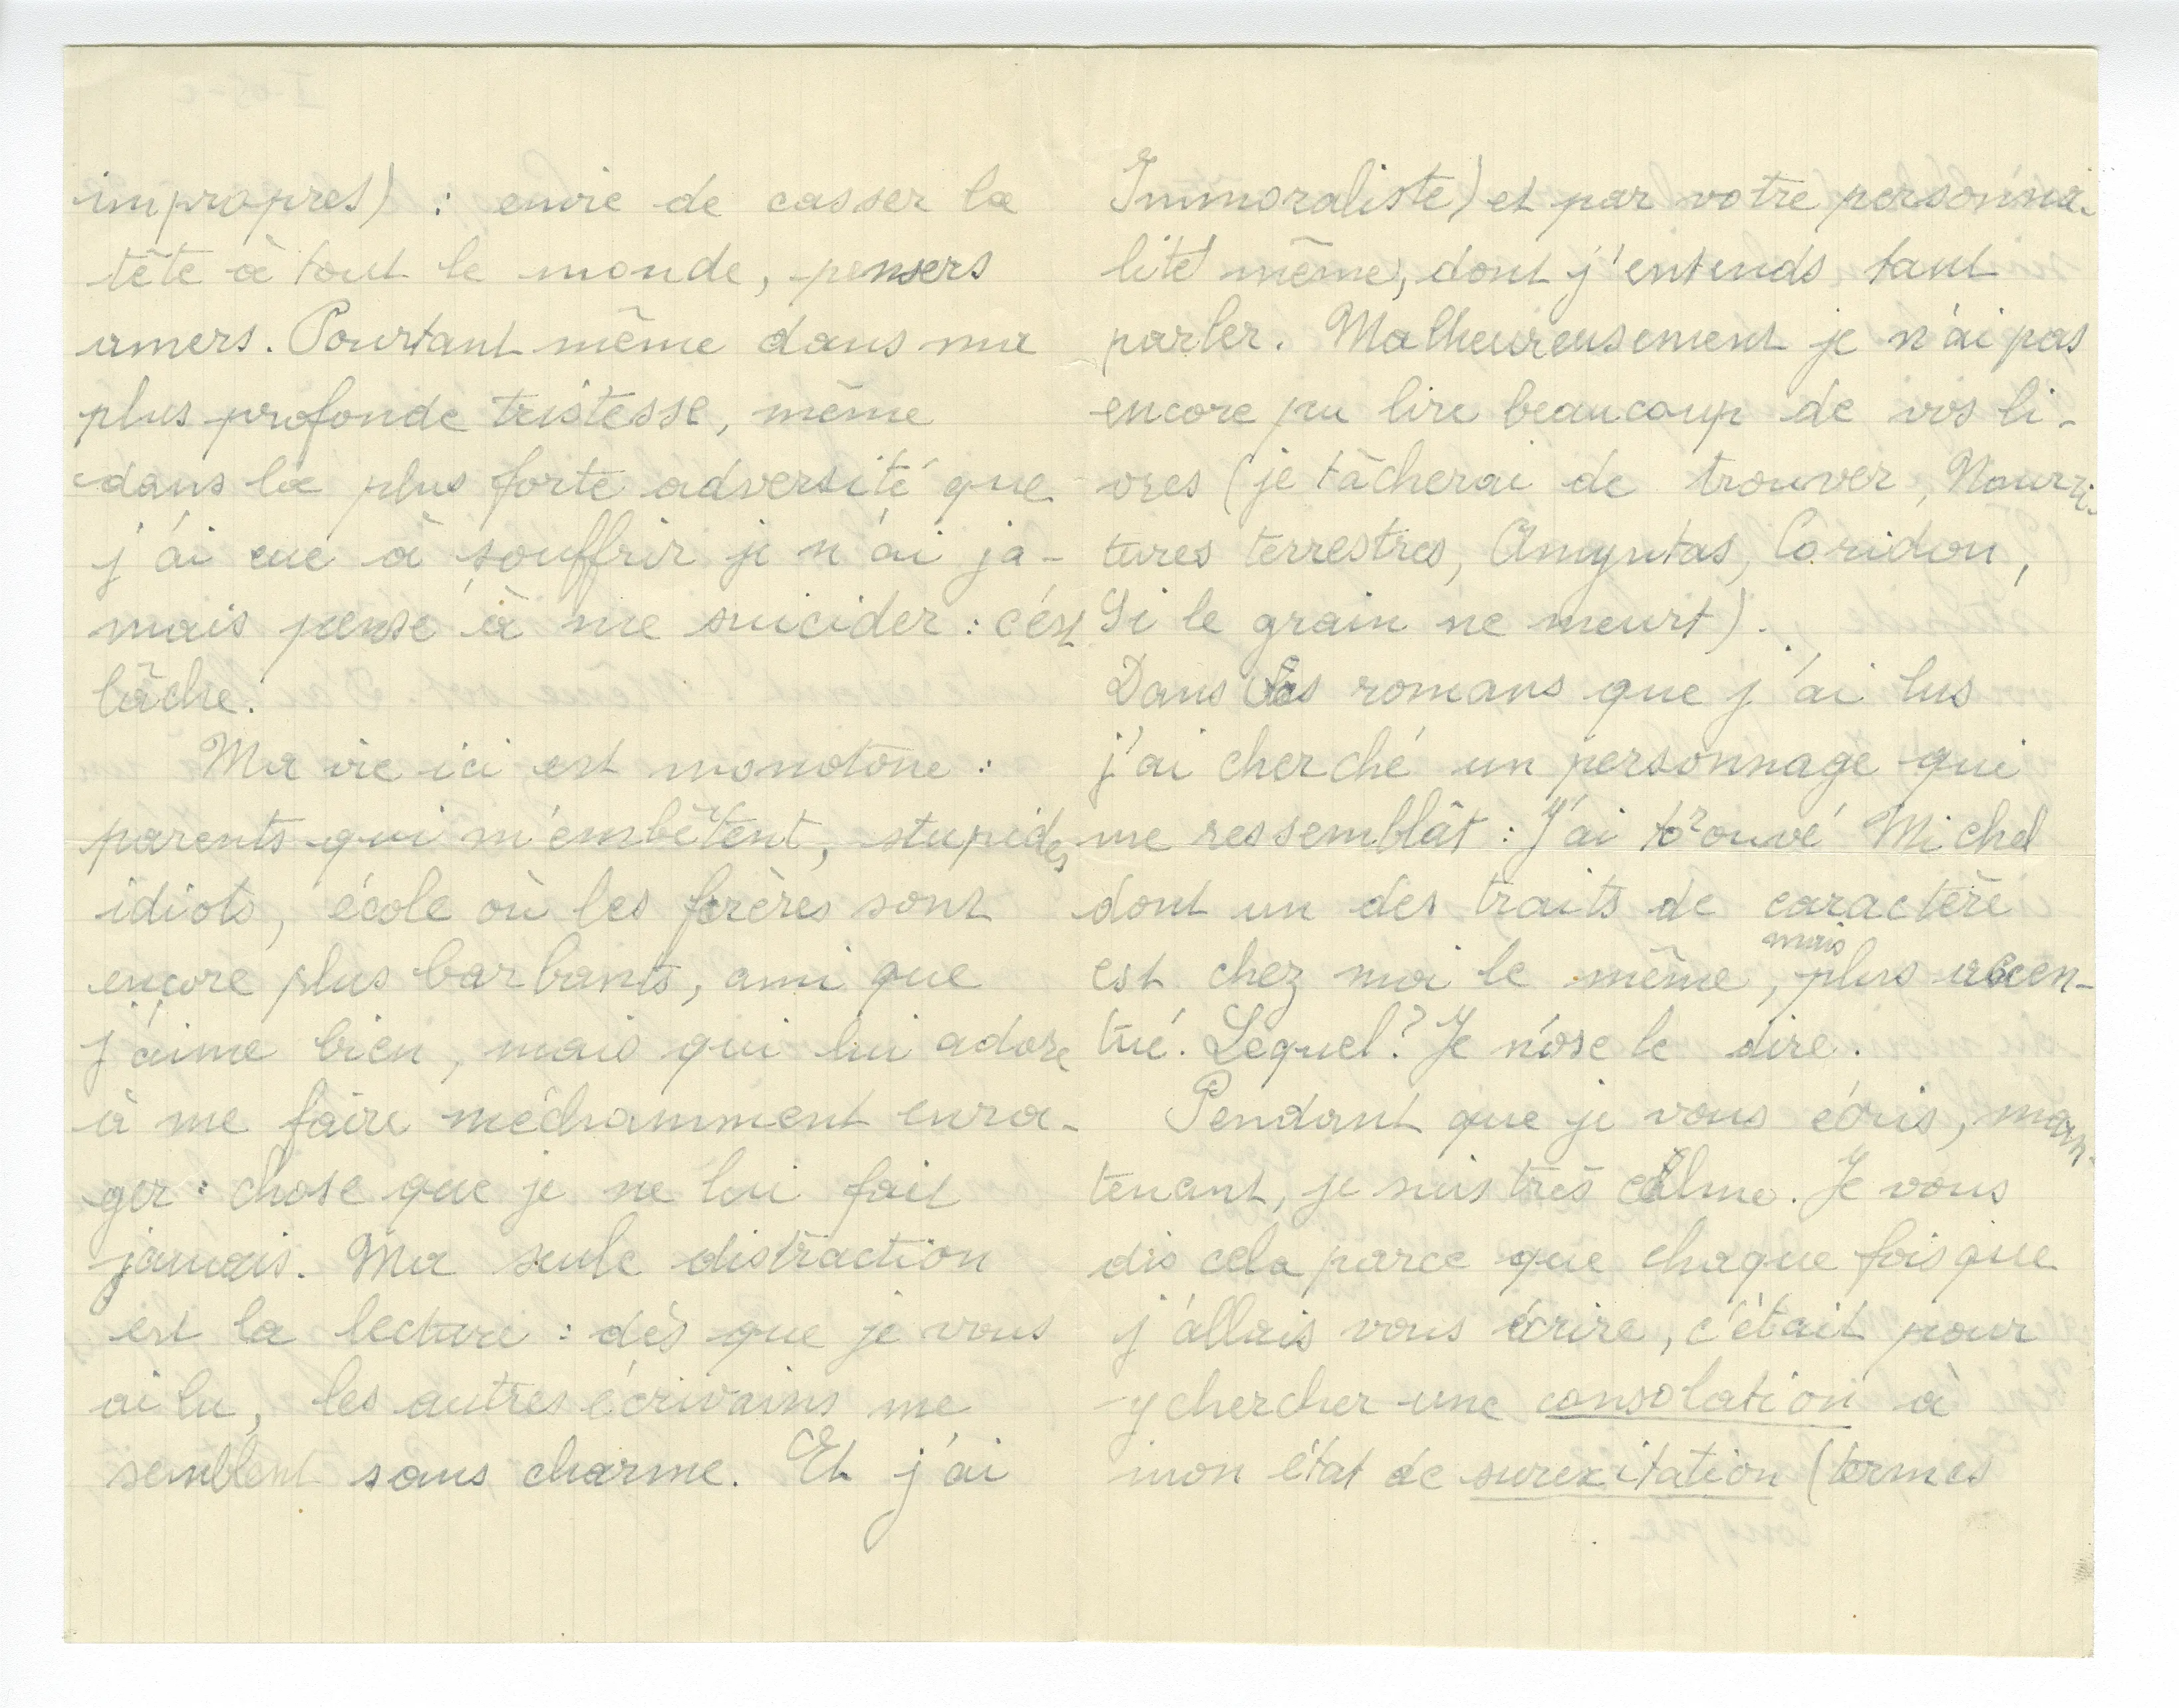 impropres) : envie de casser la
tête à tout le monde, pensers
amers. Pourtant même dans ma
plus profonde tristesse, même
dans la plus forte adversité que
j'ai eue à souffrir je n'ai ja-
mais pensé à me suicider : c'est
lâche.
Ma vie ici est monotone :
parents qui m'embêtent, stupides
idiots, école où les frères sont
encore plus barbants, ami que
j'aime bien, mais qui lui adore
à me faire méchamment enra-
ger : chose que je ne lui fait
jamais. Ma seule distraction
est la lecture : dès que je vous
ai lu, les autres écrivains me
semblent sans charme. Et j'ai
Immoraliste) et par votre personna-
lité même, dont j'entends tant
parler. Malheureusement je n'ai pas
encore pu lire beaucoup de vos li-
vres (je tâcherai de trouver, Nourri-
tures terrestres, Amyntas, Coridon,
Si le grain ne meurt).
Dans les romans que j'ai lus
j'ai cherché un personnage qui
me ressemblât : J'ai trouvé Michel
dont un des traits de caractère
est chez moi le même, mais plus accen-
tué. Lequel? Je n'ose le dire.
Pendant que je vous écris, main-
tenant, je suis très calme. Je vous
dis cela parce que chaque fois que
j'allais vous écrire, c'était pour
y chercher une consolation à
mon état de surexitation (termes